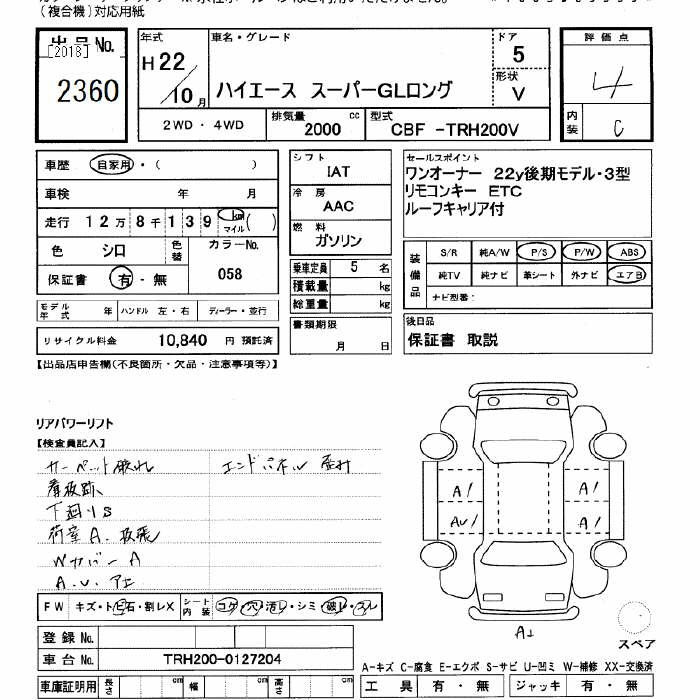 (複合機)対応用紙
出品No.
[2018]
2360
年式
H22/10月
車名・グレード
ハイエース スーパーGLロング
ドア
5
形状
V
評価点
4
内装
C
2WD・4WD
排気量 2000 cc
型式 CBF -TRH200V
車歴 自家用・( )
車検 年 月
走行 12万8千139 km マイル( )
色 シロ 色替
カラーNo.
058
保証書 有・無
モデル年式 年 ハンドル 左・右 ディーラー・並行
リサイクル料金 10,840 円 預託済
シフト
IAT
冷房
AAC
燃料
ガソリン
乗車定員 5 名
積載量 kg
総重量 kg
書類期限
月 日
セールスポイント
ワンオーナー 22y後期モデル・3型
リモコンキー ETC
ルーフキャリア付
装備品
S/R 純A/W P/S P/W ABS
純TV 純ナビ 革シート 外ナビ エアB
ナビ型番:
後日品
保証書 取説
【出品店申告欄(不良箇所・欠品・注意事項等)】
リアパワーリフト
【検査員記入】
カーペット破れ エンドパネル 歪み
看板跡
下廻りS
荷室A、板張
Wカバー A
A.U.アエ
A1 A1
AU1 A1
A1
スペア
FW キズ・トビ石・割レX シート内装 コゲ・穴・汚レ・シミ・破レ・スレ
登録No.
車台No. TRH200-0127204
車庫証明用 長さ cm 幅 cm 高さ cm
A-キズ C-腐食 E-エクボ S-サビ U-凹ミ W-補修 XX-交換済
工具 有・無 ジャッキ 有・無